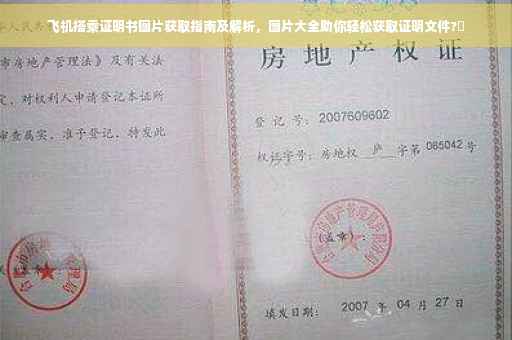 飞机搭乘证明书图片获取指南及解析，图片大全助你轻松获取证明文件?
华人民共
市房地产管理法》及有关法
定，对权利人申请登记本证所
审查属实，准予登记，特发此
房地产权
登记号：2007609602
权证字号：房地权 庐 字第 065042 号
(盖章)：
填发日期： 2007 年 04 月 27 日